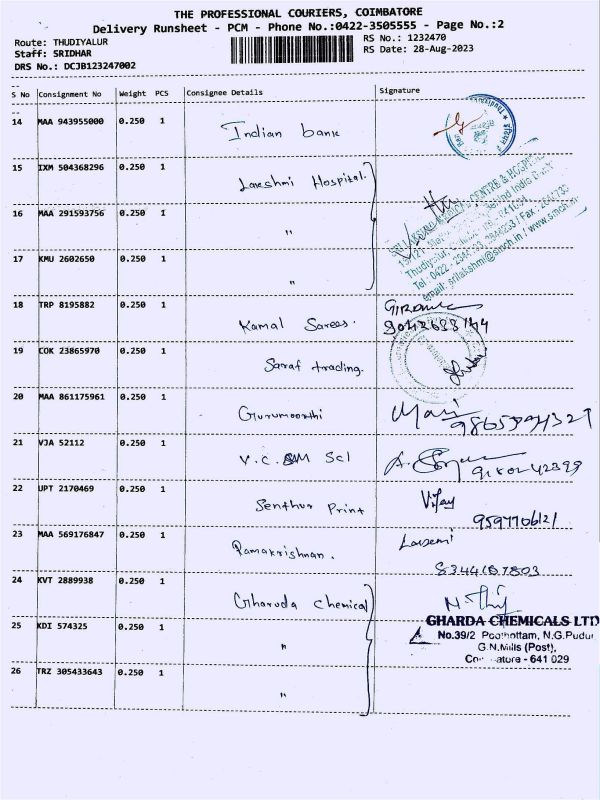 THE PROFESSIONAL COURIERS, COIMBATORE
Delivery Runsheet - PCM - Phone No.:0422-3505555 - Page No.:2
Route: THUDIYALUR
Staff: SRIDHAR
DRS No.: DCJB123247002
RS No.: 1232470
RS Date: 28-Aug-2023
S No Consignment No Weight PCS Consignee Details Signature
14 MAA 943955000 0.250 1 Indian bank
15 IXM 504368296 0.250 1 Lakshmi Hospital.
16 MAA 291593756 0.250 1 "
17 KMU 2602650 0.250 1 "
Thudiyalur
email: srilakshmi@slmch.in / www.slmch.in
18 TRP 8195882 0.250 1 Kamal Sarees.
19 COK 23865970 0.250 1 Saraf trading.
20 MAA 861175961 0.250 1 Gurumoorthi Mari
21 VJA 52112 0.250 1 V.C.SM Scl
22 UPT 2170469 0.250 1 Senthur Print Vijay
9597706121
23 MAA 569176847 0.250 1 Ramakrishnan.
8344187803
24 KVT 2889938 0.250 1 Gharuda chemical
GHARDA CHEMICALS LTD
No.39/2 Poothottam, N.G.Pudur
G.N.Mills (Post),
641 029
25 KDI 574325 0.250 1 "
26 TRZ 305433643 0.250 1 "